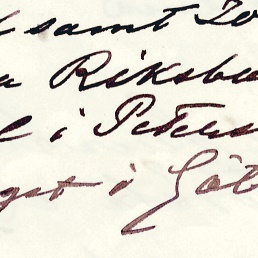 samt 20
a Riksba
l i Peters
get i Göt